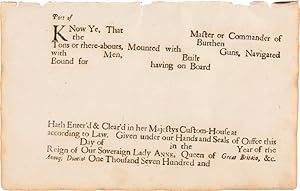 Port of
KNow Ye, That
the Master or Commander of
Burthen
Tons or there-abouts, Mounted with Guns, Navigated
with Men, Built
Bound for having on Board
Hath Enter'd & Clear'd in her Majestys Custom-House at
according to Law. Given under our Hands and Seals of Office this
Day of in the Year of the
Reign of Our Sovereign Lady ANNE, Queen of Great Britain, &c.
Annoq; Domini One Thousand Seven Hundred and